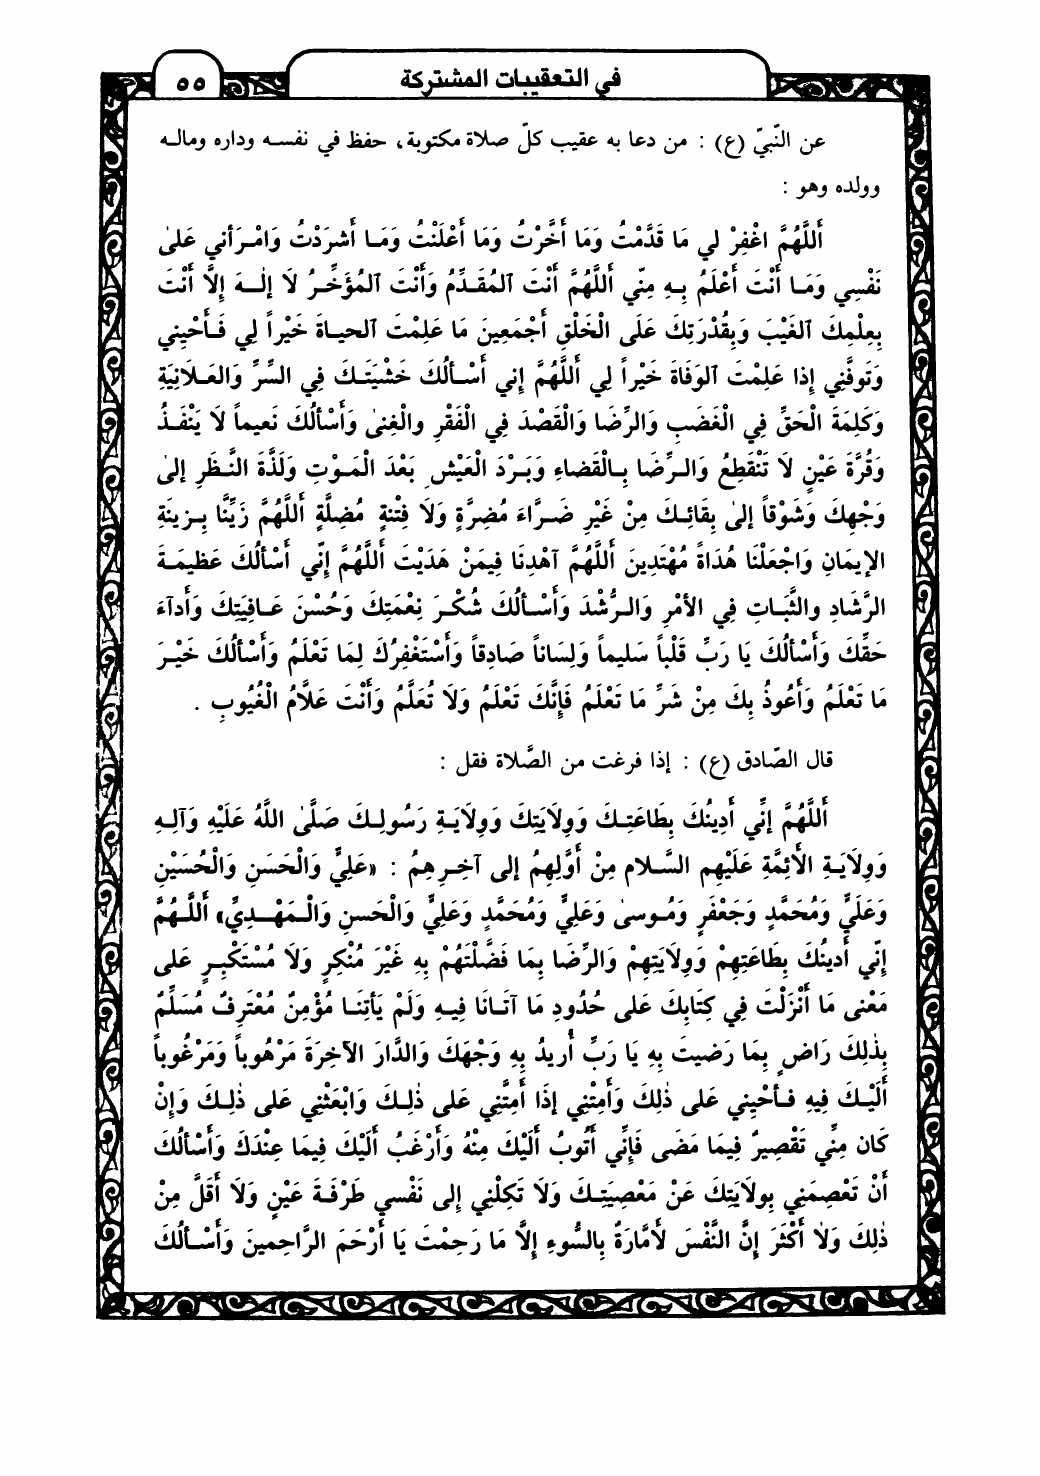 في التعقيبات المشتركة
٥٥
عن النّبيّ (ع) : من دعا به عقيب كلّ صلاة مكتوبة، حفظ في نفسه وداره وماله
وولده وهو :
أَللَّهُمَّ اغْفِرْ لي مَا قَدَّمْتُ وَمَا أَخَّرْتُ وَمَا أَعْلَنْتُ وَمَا أَسْرَرْتُ وَاسْرَافي عَلىٰ
نَفْسِي وَمَا أَنْتَ أَعْلَمُ بِهِ مِنّي أَللَّهُمَّ أَنْتَ ٱلمُقَدِّمُ وَأَنْتَ ٱلمُؤَخِّرُ لَا إِلٰهَ إِلَّا أَنْتَ
بِعِلْمِكَ ٱلغَيْبَ وَبِقُدْرَتِكَ عَلَى الْخَلْقِ أَجْمَعِينَ مَا عَلِمْتَ ٱلحياةَ خَيْراً لِي فَأَحْيِني
وَتَوَفَّنِي إِذا عَلِمْتَ ٱلوَفَاةَ خَيْراً لِي أَللَّهُمَّ إِني أَسْأَلُكَ خَشْيَتَكَ فِي السِّرِّ وَالعَلاَنِيَةِ
وَكَلِمَةَ الْحَقِّ فِي الْغَضَبِ وَالرِّضَا وَالْقَصْدَ فِي الْفَقْرِ والْغِنىٰ وَأَسْأَلُكَ نَعيماً لَا يَنْفَذُ
وَقُرَّةَ عَيْنٍ لَا تَنْقَطِعُ وَالرِّضَا بِالْقَضاءِ وَبَرْدَ الْعَيْشِ بَعْدَ الْمَوْتِ وَلَذَّةَ النَّظَرِ إِلىٰ
وَجْهِكَ وَشَوْقاً إِلىٰ بِقَائِكَ مِنْ غَيْرِ ضَرَّاءَ مُضِرَّةٍ وَلَا فِتْنةٍ مُضِلَّةٍ أَللَّهُمَّ زَيِّنَّا بِزينَةِ
الإيمَانِ وَاجْعَلْنَا هُدَاةً مُهْتَدِينَ أَللَّهُمَّ ٱهْدِنَا فِيمَنْ هَدَيْتَ أَللَّهُمَّ إِنّي أَسْأَلُكَ عَظيمَةَ
الرَّشَادِ والثَّبَاتِ فِي الأَمْرِ وَالرُّشْدَ وَأَسْأَلُكَ شُكْرَ نِعْمَتِكَ وَحُسْنَ عَافِيَتِكَ وَأَدآءَ
حَقِّكَ وَأَسْأَلُكَ يَا رَبِّ قَلْباً سَليماً وَلِسَاناً صَادِقاً وَأَسْتَغْفِرُكَ لِمَا تَعْلَمُ وَأَسْأَلُكَ خَيْرَ
مَا تَعْلَمُ وَأَعُوذُ بِكَ مِنْ شَرِّ مَا تَعْلَمُ فَإِنَّكَ تَعْلَمُ وَلَا نُعَلَّمُ وَأَنْتَ عَلاَّمُ الْغُيُوبِ .
قال الصّادق (ع) : إذا فرغت من الصَّلاة فقل :
أَللَّهُمَّ إِنِّي أَدِينُكَ بِطَاعَتِكَ وَوِلَايَتِكَ وَوِلَايَةِ رَسُولِكَ صَلَّىٰ اللَّهُ عَلَيْهِ وَآلِهِ
وَوِلَايَةِ الأَئِمَّةِ عَلَيْهِم السَّلام مِنْ أَوَّلِهِمُ إلى آخِرِهِمُ : «عَلِيٍّ وَالْحَسَنِ وَالْحُسَيْنِ
وَعَلَيٍّ وَمُحَمَّدٍ وَجَعْفَرٍ وَمُوسىٰ وَعَلِيٍّ وَمُحَمَّدٍ وَعَلِيٍّ وَالْحَسنِ وَالْمَهْدِيِّ» أَللَّهُمَّ
إِنّي أَدينُكَ بِطَاعَتِهِمْ وَوِلاَيَتِهِمْ وَالرِّضَا بِمَا فَضَّلْتَهُمْ بِهِ غَيْرَ مُنْكِرٍ وَلَا مُسْتَكْبِرٍ عَلى
مَعْنى مَا أَنْزَلْتَ فِي كِتَابِكَ عَلى حُدُودِ مَا آتَانَا فِيهِ وَلَمْ يَأتِنَا مُؤْمِنٌ مُعْتَرِفٌ مُسَلِّمٌ
بِذٰلِكَ رَاضٍ بِمَا رَضيتَ بِهِ يَا رَبِّ أُريدُ بِهِ وَجْهَكَ وَالدَّارَ الآخِرَةَ مَرْهُوباً وَمَرْغُوباً
أَلَيْكَ فِيهِ فَأَحْيِني عَلى ذٰلِكَ وَأَمِتْنِي إذَا أَمِتَّنِي عَلى ذٰلِكَ وَابْعَثْنِي عَلى ذٰلِكَ وَإِنْ
كَان مِنِّي تَقْصِيرٌ فِيمَا مَضَى فَإِنِّي أَتُوبُ أَلَيْكَ مِنْهُ وَأَرْغَبُ أَلَيْكَ فِيمَا عِنْدَكَ وَأَسْأَلُكَ
أَنْ تَعْصِمَنِي بِولَايَتِكَ عَنْ مَعْصِيَتِكَ وَلَا تَكِلْنِي إِلى نَفْسي طَرْفَةَ عَيْنٍ وَلَا أَقَلَّ مِنْ
ذٰلِكَ وَلَا أَكْثَرَ إِنَّ النَّفْسَ لأَمَّارَةٌ بِالسُّوءِ إِلَّا مَا رَحِمْتَ يَا أَرْحَمَ الرَّاحِمينَ وَأَسْأَلُكَ